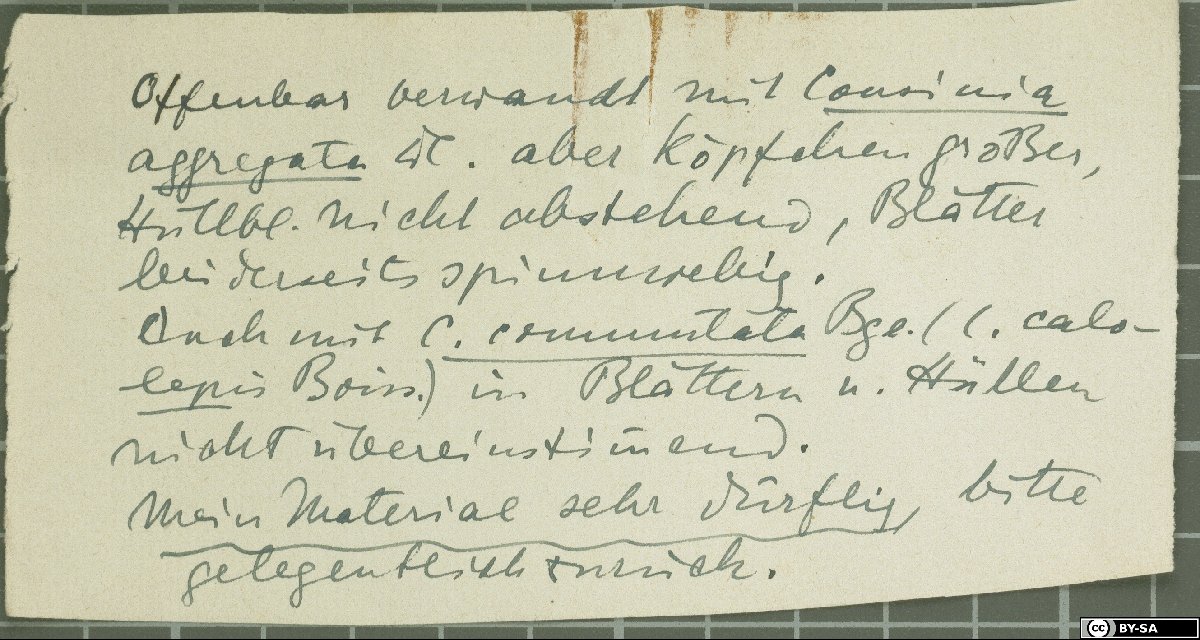 Offenbar verwandt mit Cousinia
aggregata DC. aber Köpfchen größer,
Hüllbl. nicht abstehend, Blätter
beiderseits spinnwebig.
Auch mit C. commutata Bge. (C. calo-
lepis Boiss.) in Blättern u. Hüllen
nicht übereinstim̄end.
Mein Material sehr dürftig, bitte
gelegentlich zurück.
CC BY-SA